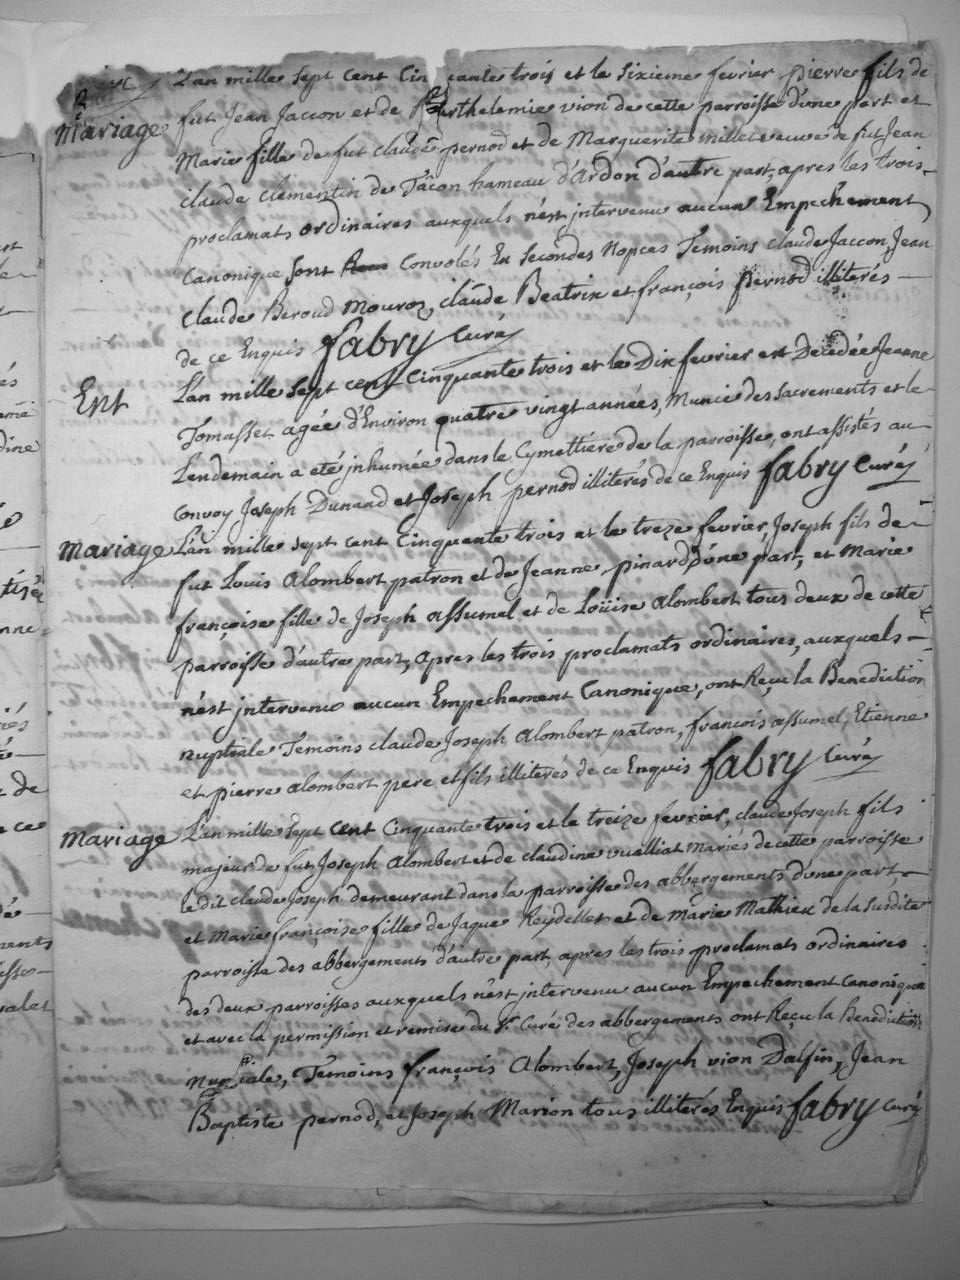 Mariage
L'an mille sept cent Cinquante trois et le Sixieme fevrier pierre fils de
fut Jean Jaccon et de Barthelemie vion de cette parroisse d'une part et
Marie fille de fut claude pernod et de Marguerite millet veuve de fut Jean
claude Clementin de Tacon hameau d'Ardon d'autre part, apres les trois
proclamats ordinaires auxquels n'est jntervenu aucun Empechement
Canonique sont Convolés En secondes nopces Temoins claude Jaccon, Jean
claude Beroud Mouroz, claude Beatrix et françois pernod illiterés
de ce Enquis fabry Curé
Ent
L'an mille sept cent cinquante trois et le Dix fevrier est Decedée Jeanne
Tomasset agée d'Environ quatre vingt années, Munie des sacrements et le
Lendemain a eté jnhumée dans le Cymettiere de la parroisse, ont assistés au
Convoy Joseph Dunand et Joseph pernod illiterés de ce Enquis fabry Curé
Mariage
L'an mille sept cent Cinquante trois et le treze fevrier, Joseph fils de
fut Louis Alombert patron et de Jeanne pinard D'une part, et Marie
françoise fille de Joseph assumel et de Loüise Alombert tous deux de cette
parroisse d'autre part, apres les trois proclamats ordinaires, auxquels
n'est jntervenu aucun Empechement Canonique, ont Reçu la Benediction
nuptiale Temoins claude Joseph Alombert patron, françois assumel, Etienne
et pierre Alombert pere et fils illiteres de ce Enquis fabry Curé
Mariage
L'an mille Sept cent Cinquante trois et le treize fevrier, claude Joseph fils
majeur de fut Joseph Alombert et de claudine vuailliat mariés de cette parroisse
le dit claude Joseph demeurant dans la parroisse des abbergements d'une part,
et Marie françoise fille de Jaque Reydellet et de Marie Mathieu de la susdite
parroisse des abbergements d'autre part, apres les trois proclamats ordinaires
des deux parroisses auxquels n'est jntervenu aucun Empechement Canonique
et avec la permission et remise du Sr Curé des abbergements ont Reçu la Benediction
Nuptiale, Temoins françois Alombert, Joseph vion Dalfin, Jean
Baptiste pernod, et Joseph Marion tous illiterés Enquis fabry Curé